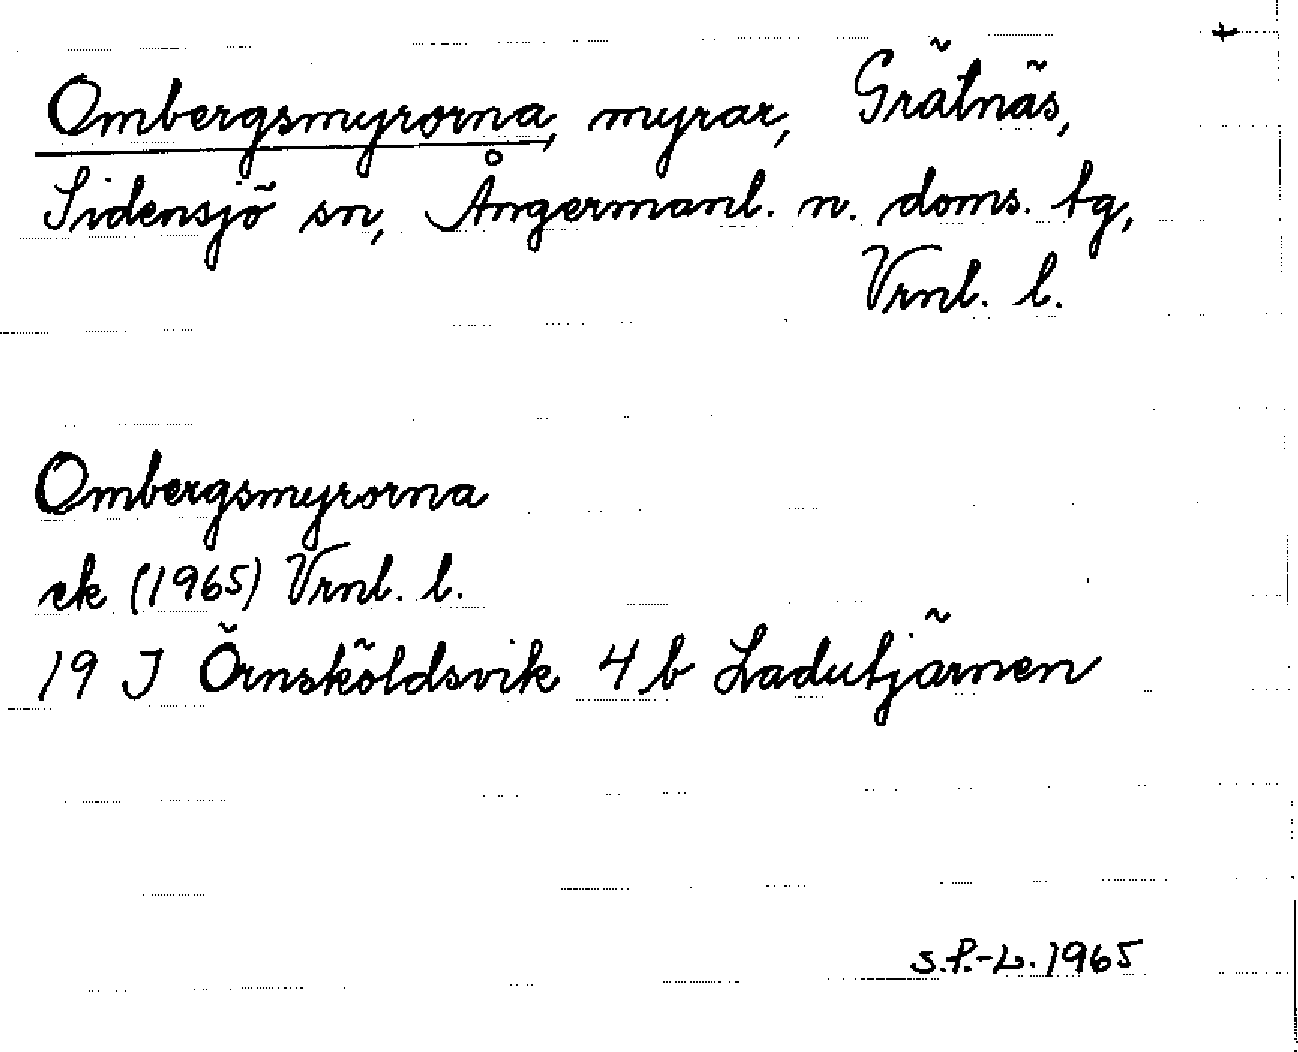 +
Ombergsmyrorna, myrar, Grätnäs,
Sidensjö sn, Ångermanl. n. doms. tg,
Vrnl. l.
Ombergsmyrorna
ek (1965) Vrnl. l.
19 J Örnsköldsvik 4 b Ladutjärnen
S.P.-L. 1965